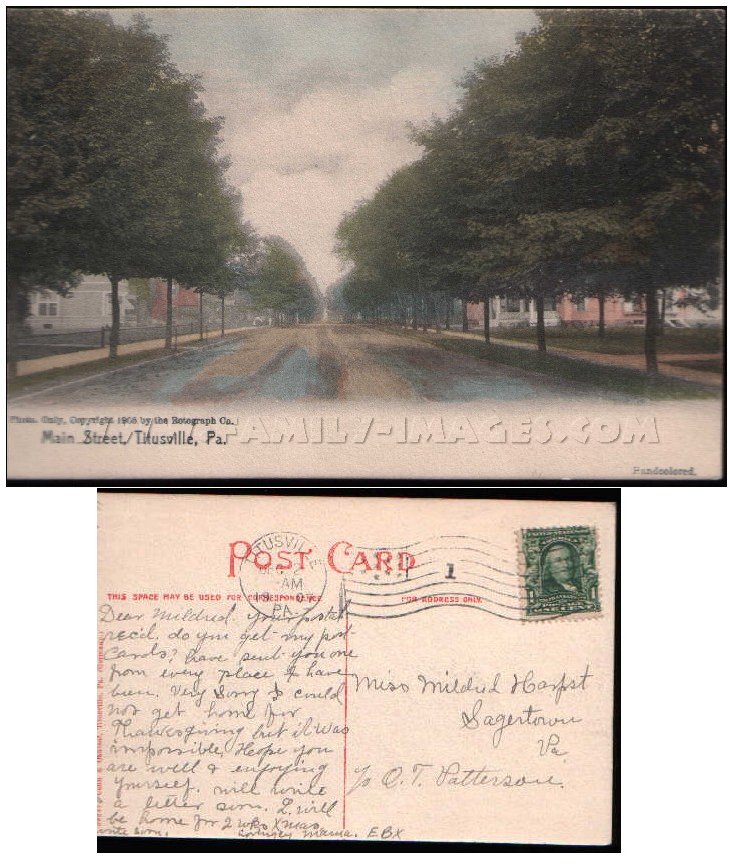 Photo. Only, Copyright 1905 by the Rotograph Co.
FAMILY-IMAGES.COM
Main Street, Titusville, Pa.
Handcolored.
POST CARD
TITUSVILLE
DEC 2
AM
PA.
1
THIS SPACE MAY BE USED FOR CORRESPONDENCE
FOR ADDRESS ONLY.
Dear Mildred. your postal
rec'd. do you get my post
cards? have sent you one
from every place I have
been. Very Sorry I could
not get home for
Thanksgiving but it was
impossible, Hope you
are well & enjoying
yourself. will write
a letter soon. I will
be home for 2 wks Xmas
write soon. Mama. EBX
Miss Mildred Harpst
Sagertown
Pa
c/o O. T. Patterson.